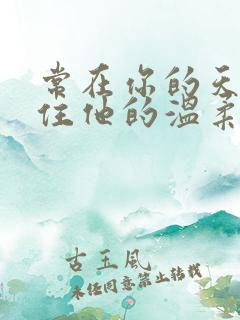 常在你的天
住他的温柔
古玉风
未经同意禁止转载